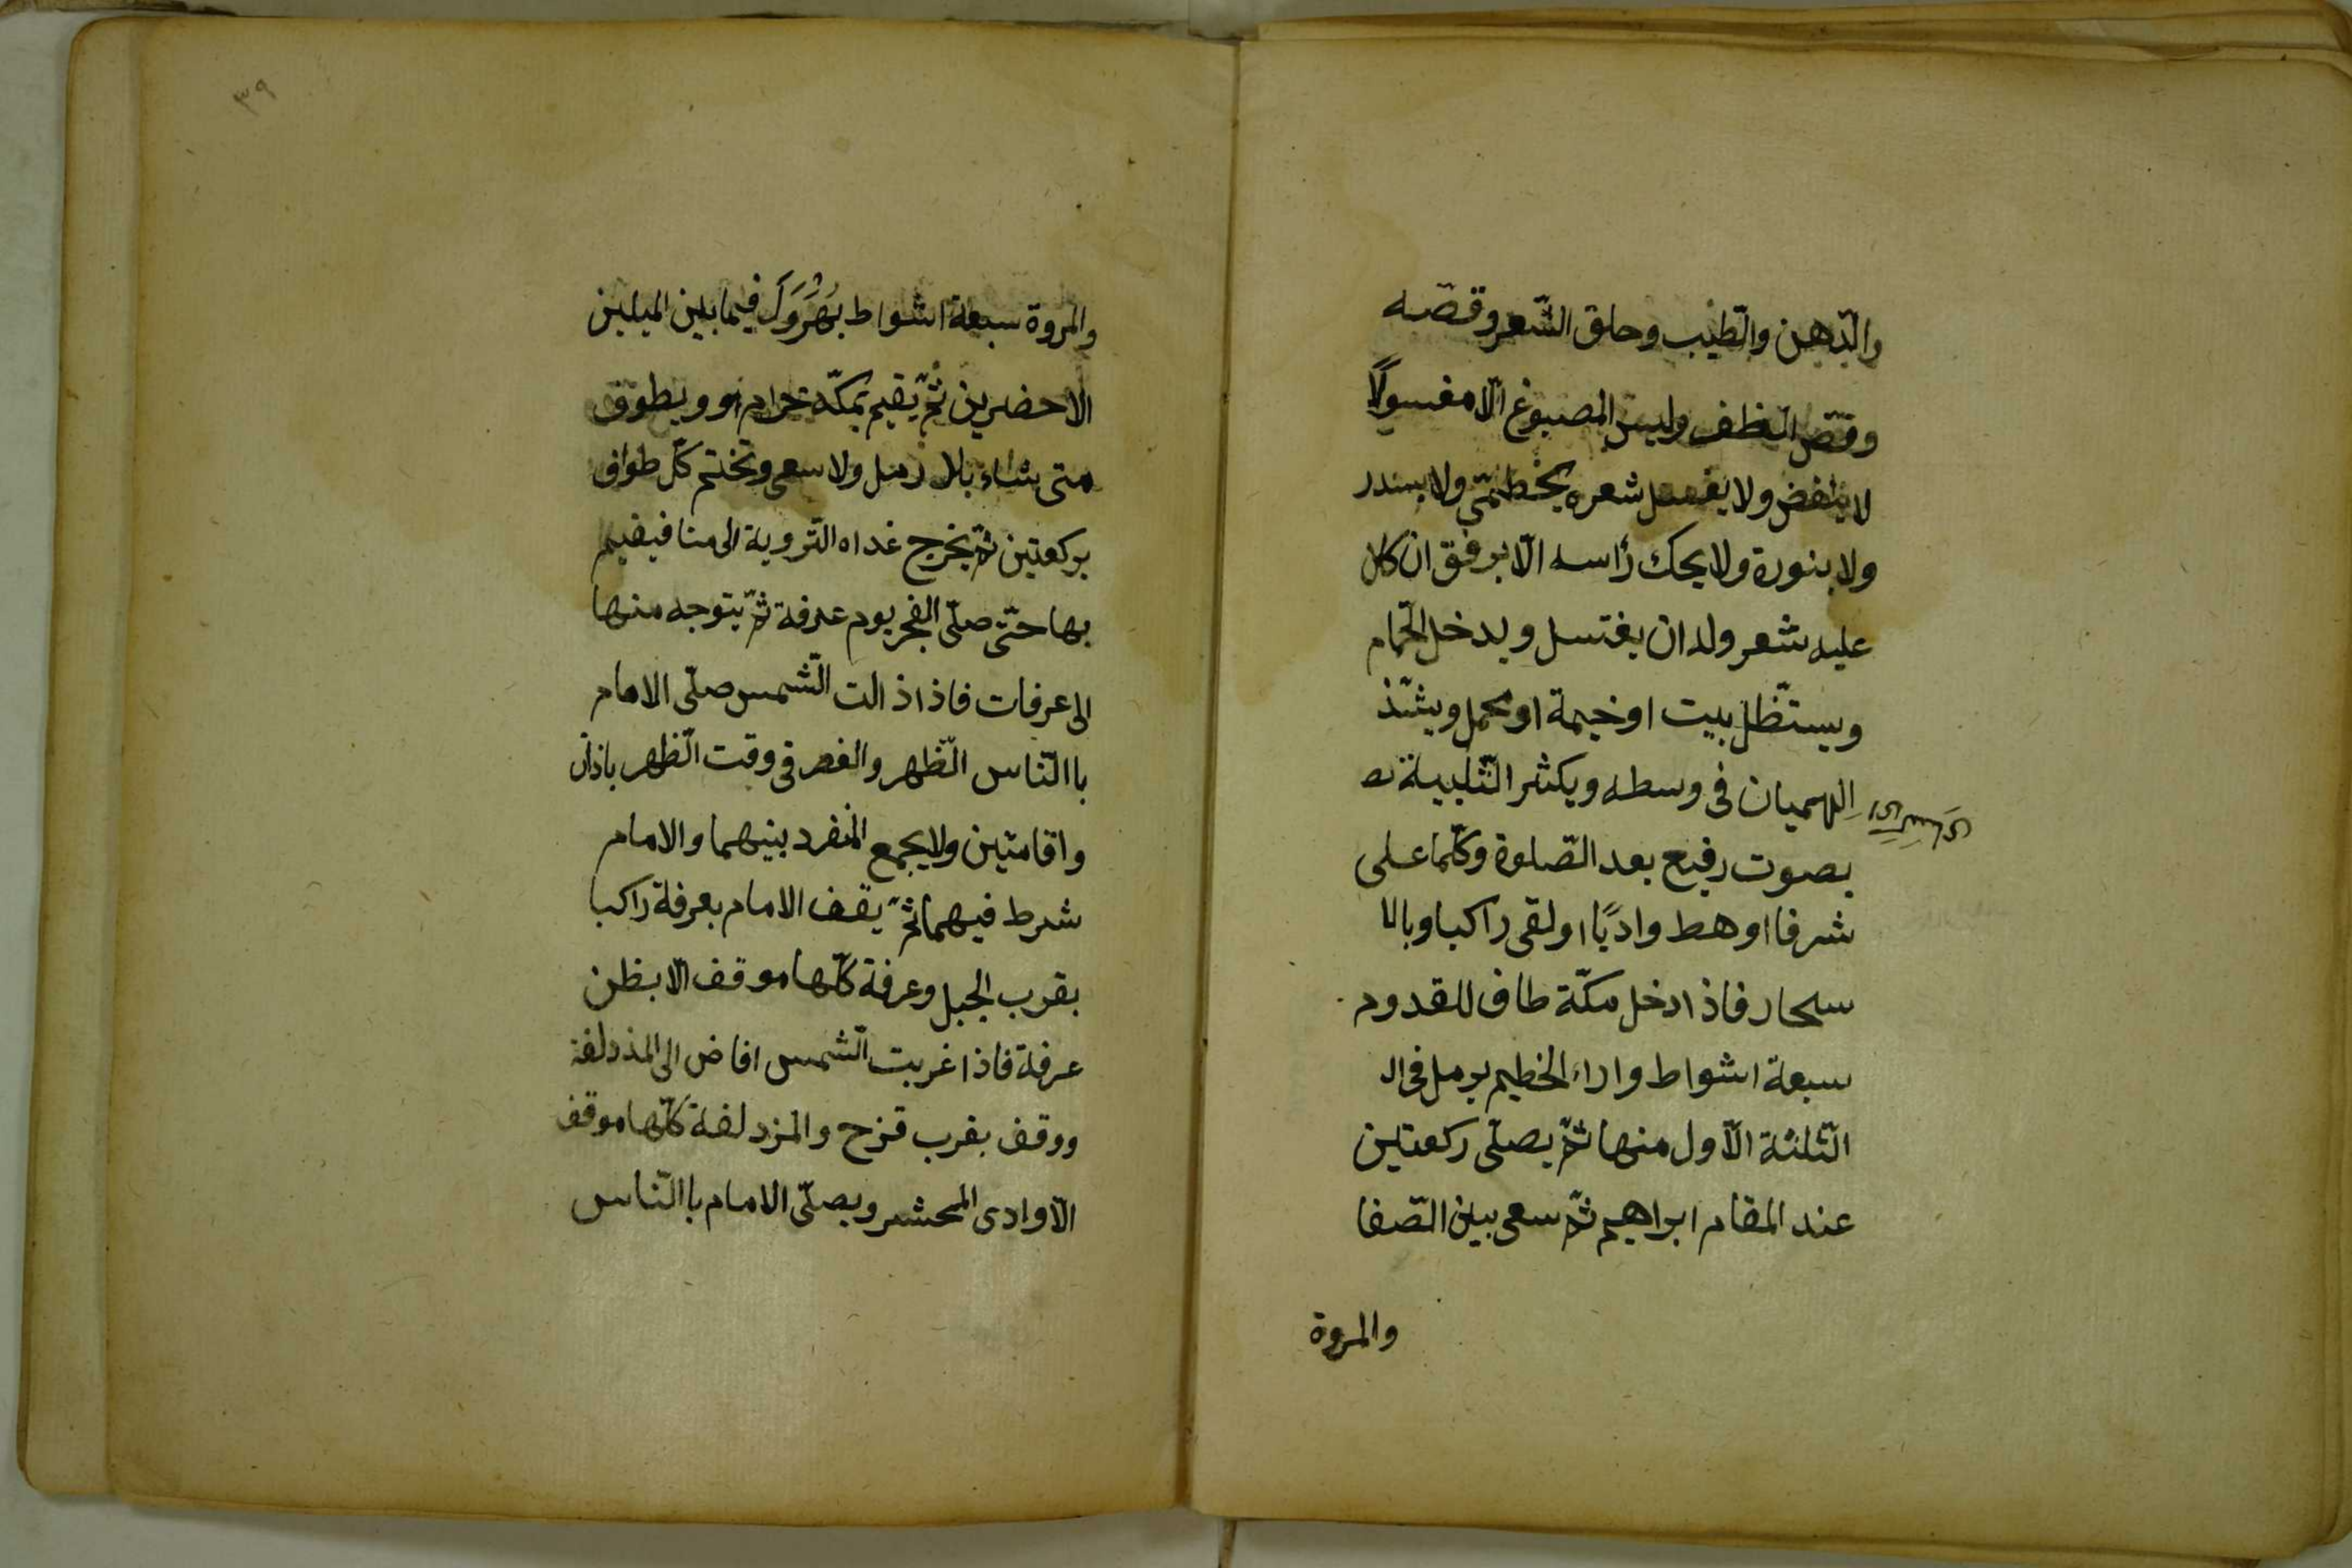 والدّهن والطّيب وحلق الشّعر وقصّه
وقصّ الظفر ولبس المصبوغ الّا مغسولًا
لا ينفض ولا يغسل شعره بخطمّي ولا بسدر
ولا بنورة ولا يحك رأسه الّا برفق ان كان
عليه شعر وله ان يغتسل ويدخل الحّمام
ويستّظل ببيت او خيمة او محمل ويشّد
الهميان فى وسطه ويكثر التّلبية
بصوت رفيع بعد الصّلوة وكلّما على
شرفا او هبط واديًا او لقى راكبا وبالا
سحار فاذا دخل مكّة طاف للقدوم
سبعة اشواط واراء الخطيم يرمل فى ال
الثّلثة الاّول منها ثمّ يصلّى ركعتين
عند المقام ابراهيم ثمّ سعى بين الصّفا
والمروة
٣٩
والمروة سبعة اشواط يهرول فيما بين الميلين
الاخضرين ثمّ يقيم بمكّة حرام او ويطوف
متى شاء بلا رمل ولا سعى وتختم كلّ طواف
بركعتين ثمّ يخرج غداه التّروية الى منا فيقيم
بها حتّى صلّى الفجر يوم عرفة ثمّ يتوجه منها
الى عرفات فاذا ذالت الشّمس صلّى الامام
با النّاس الظّهر والعصر فى وقت الظّهر باذان
واقامتين ولا يجمع المنفرد بينهما والامام
شرط فيهما ثمّ يقف الامام بعرفة راكبا
بقرب الجبل وعرفة كلّها موقف الّا بطن
عرفة فاذا غربت الشّمس افاض الى المذدلفة
ووقف بقرب قزح والمزدلفة كلّها موقف
الّا وادى المحشر ويصلّى الامام با النّاس